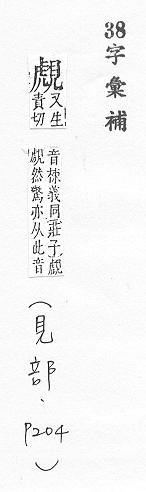 38字彙補
覤又生責切
音㨖義同莊子覤
覤然驚亦从此音
(見部、P204)